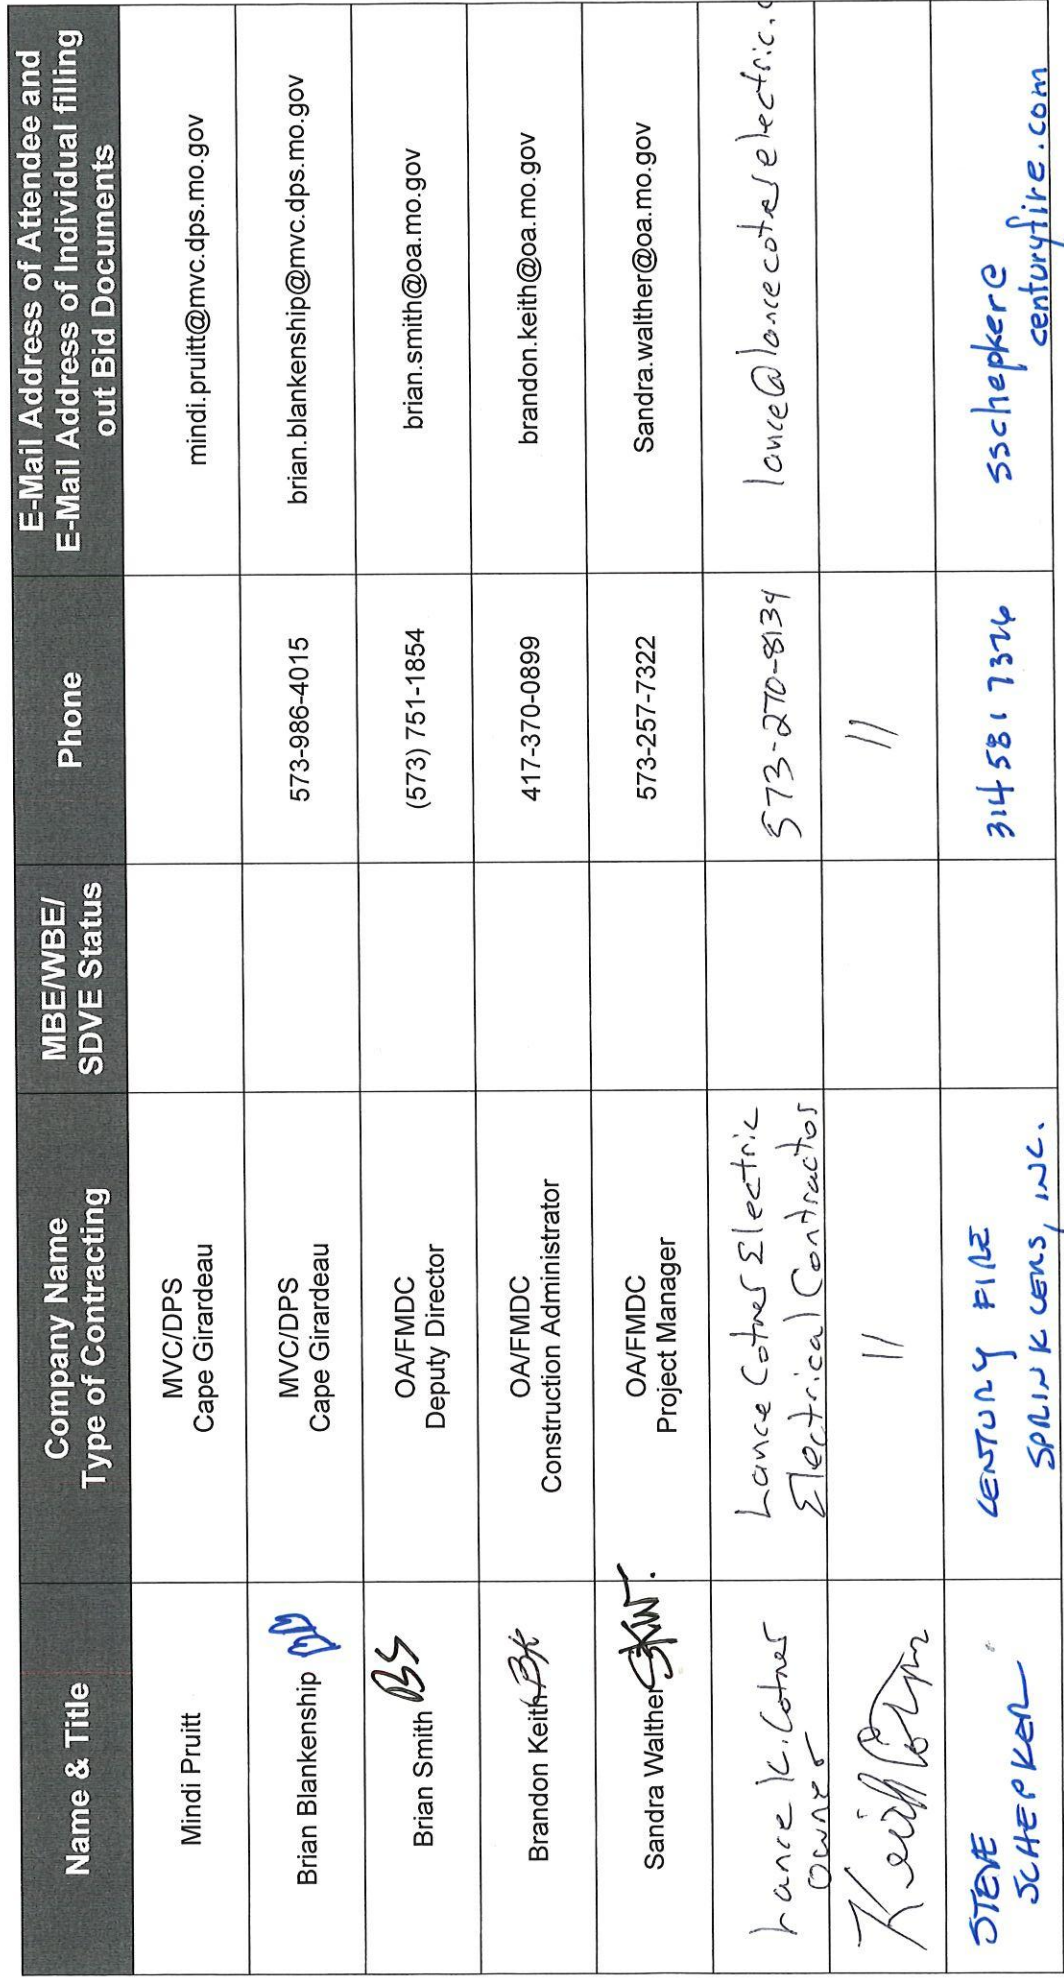 Name & Title
Company Name
Type of Contracting
MBE/WBE/
SDVE Status
Phone
E-Mail Address of Attendee and
E-Mail Address of Individual filling
out Bid Documents
Mindi Pruitt
MVC/DPS
Cape Girardeau
mindi.pruitt@mvc.dps.mo.gov
Brian Blankenship BB
MVC/DPS
Cape Girardeau
573-986-4015
brian.blankenship@mvc.dps.mo.gov
Brian Smith BS
OA/FMDC
Deputy Director
(573) 751-1854
brian.smith@oa.mo.gov
Brandon Keith BK
OA/FMDC
Construction Administrator
417-370-0899
brandon.keith@oa.mo.gov
Sandra Walther SKW.
OA/FMDC
Project Manager
573-257-7322
Sandra.walther@oa.mo.gov
Lance K. Cotner
Owner
Lance Cotner Electric
Electrical Contractor
573-270-8134
lance@lancecotnerelectric.c
Keith
"
"
STEVE
SCHEPKER
CENTURY FIRE
SPRINKLERS, INC.
314 581 7326
sschepker@
centuryfire.com